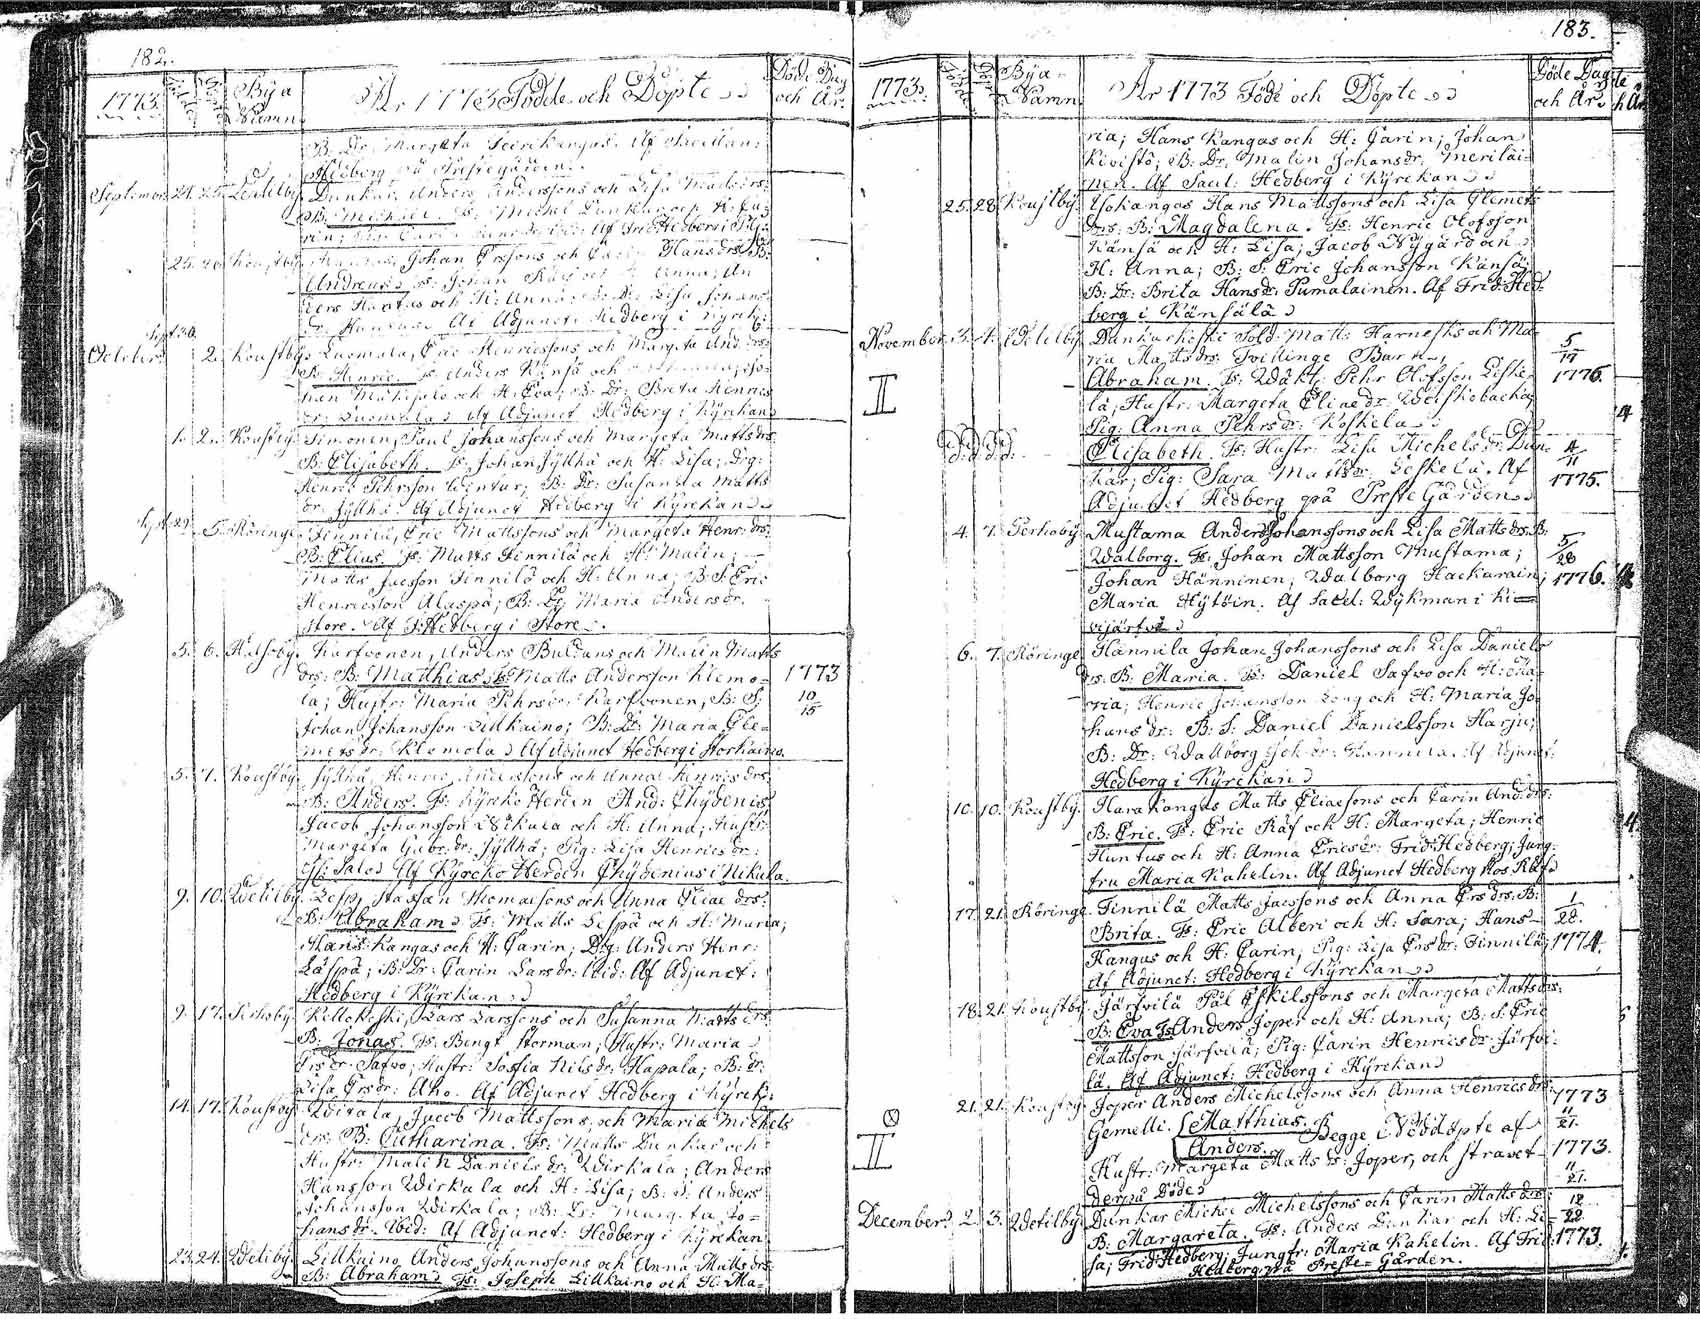 182.
1773. Födde Döpte Bya Namn År 1773 Födde och Döpte Döde Dag och År.
B: Dr: Margeta
Hedberg på Prestegården.
September 21. 25. Dunkar, Anders Anderssons och Lisa Madsdrs:
B: Michael. Fs: Michel Dunkar och H:
25. 26. Johan Ersons och Hansdrs: B:
Andreas. Fs: Johan Räf och H: Anna; An
ders Huntus och H: Anna; B: Dr: Lisa Johans
dr: Huntus. Af Adjunct: Hedberg i Kyrk:
Sept. 30.
October. 2. Koustby. Luomala, Eric Henricssons och Margeta And:drs:
B: Henric. Fs: Anders Känsä och
han och H: Eva; B: Dr: Brita Henrics
dr: Luomala. Af Adjunct Hedberg i Kyrckan
1. 2. Koustby. Timonen, Paul Johanssons och Margeta Mattsdrs
B: Elisabeth. Fs: Johan Jyllhä och H: Lisa; Drg:
Henric Pehrsson Wintur; B: Dr: Susanna Matts
dr: Jyllhä. Af Adjunct Hedberg i Kyrckan
Sept. 29. 5. Röringe. Finnilä, Eric Mattssons och Margeta Henr:drs:
B: Elias. Fs: Matts Finnilä och H: Malin;
Matts Jacsson Finnilä och H: Anna; B: S: Eric
Henricsson Alaspä; B: Dr: Maria Andersdr:
Store. Af F: Hedberg i Store.
5. 6. Halsoby. Karfvonen, Anders Buldans och Malin Matts
drs: B: Matthias. Fs: Matts Andersson Klemo=
la; Hustr: Maria Pehrsdr: Karfvonen; B: S:
Johan Johansson Lillkaino; B: Dr: Maria Cle=
metsdr: Klemola. Af Adjunct Hedberg i Storkaino.
1773
10
15
5. 7. Koustby. Jyllhä, Henric Anderssons och Anna Henricsdrs:
B: Anders. Fs: Kyrcko Herden And: Chydenius
Jacob Johansson Wikula och H: Anna; Hustr:
Margeta Gabr:dr: Jyllhä; Pig: Lisa Henricsdr:
Salo. Af Kyrcko Herden Chydenius i Nikula.
9. 10. Wetilby. Staffan Thomassons och Anna Eliaedrs:
B: Abraham. Fs: Matts och H: Maria;
Hans Kangas och H: Carin; Drg: Anders Henr:
B: Dr: Carin Larsdr: ibid: Af Adjunct:
Hedberg i Kyrckan
9. 17. Perhoby. Kellokoski, Lars Larssons och Susanna Mattsdrs
B: Jonas. Fs: Bengt Storman; Hustr: Maria
Ersdr: Safvo; Hustr: Sofia Nilsdr: Hapala; B: dr:
Lisa Ersdr: Aho. Af Adjunct Hedberg i Kyrck:
14. 17. Koustby. Witala, Jacob Mattssons och Maria Michels
drs: B: Catharina. Fs: Matts Dunkar och
Hustr: Malin Danielsdr: Wirkala; Anders
Hansson Wirkala och H: Lisa; B: S: Anders
Johansson Wirkala; B: Dr: Margeta Jo=
hansdr: ibid: Af Adjunct: Hedberg i Kyrckan
23. 24. Wetilby. Lillkaino Anders Johanssons och Anna Mattsdrs
B: Abraham. Fs: Joseph Lillkaino och H: Ma=
183.
1773. Födde Döpte Bya Namn År 1773 Föde och Döpte Döde Dag och År
ria; Hans Kangas och H: Carin; Johan
Kivistö; B: Dr: Malin Johansdr: Meriläi=
nen. Af Sacel: Hedberg i Kyrckan
25. 28. Koustby. Hans Mattssons och Lisa Clemets
drs: B: Magdalena. Fs: Henric Olofsson
Känsä och H: Lisa; Jacob Nygård och
H: Anna; B: S: Eric Johansson Känsä;
B: Dr: Brita Hansdr: Pumalainen. Af Frid: Hed=
berg i Känsälä
November. 3. 4. Wetilby. Dunkarkoski Sold: Matts Harnesks och Ma=
ria Mattsdrs: Tvillinge Barn,
Abraham. Fs: Wäkt: Pehr Olofsson Leske=
lä; Hustr: Margeta Eliaedr:
Pig: Anna Pehrsdr: Koskela.
5
17
1776.
Elisabeth. Fs: Hustr: Lisa Michelsdr: Dun=
kar; Pig: Sara Mattsdr: Leskelä. Af
Adjunct Hedberg på PresteGården
4
11
1775.
4. 7. Perhoby. Mustama Anders Johanssons och Lisa Mattsdrs: B:
Walborg. Fs: Johan Mattsson Mustama;
Johan Hänninen; Walborg Hackarain;
Maria Hytöin. Af Sacel: Wykman i Ki=
vijärfvi
5
28
1776.
6. 7. Röringe. Hännila Johan Johanssons och Lisa Daniels
drs: B: Maria. Fs: Daniel Safvo och H: Ma=
ria; Henric Johansson Long och H: Maria Jo=
hansdr: B: S: Daniel Danielsson Harju;
B: Dr: Walborg Joh:dr: Hännila. Af Adjunct:
Hedberg i Kyrckan
10. 10. Koustby. Harakangas Matts Eliaessons och Carin And:drs:
B: Eric. Fs: Eric Räf och H: Margeta; Henric
Huntus och H: Anna Ericsdr: Frid: Hedberg; Jung=
fru Maria Kahelin. Af Adjunct Hedberg hos Räf
17. 21. Röringe. Finnilä Matts Jacssons och Anna Ersdrs: B:
Brita. Fs: Eric Alberi och H: Sara; Hans
Kangas och H: Carin; Pig: Lisa Ersdr: Finnilä;
Af Adjunct: Hedberg i Kyrckan
1
28.
1774.
18. 21. Koustby. Järfvilä Pål Eskilssons och Margeta Mattsdrs:
B: Eva. Fs: Anders Joper och H: Anna; B: S: Eric
Mattsson Järfvilä; Pig: Carin Henricsdr: Järfvi=
lä. Af Adjunct: Hedberg i Kyrckan
21. 21. Koustby. Joper Anders Michelssons och Anna Henricsdrs:
Gemelli. Matthias.
Anders. Begge i Nöddöpte af
Hustr: Margeta Mattsdr: Joper, och stravet
derpå Döde
1773
11
21.
1773.
11
21.
December. 2. 3. Wetilby. Dunkar Michel Michelssons och Carin Mattsdrs:
B: Margareta. Fs: Anders Dunkar och H: Li=
sa; Frid: Hedberg; Jungfr: Maria Kahelin. Af Frid:
Hedberg på Preste=Gården.
12
22
1773.